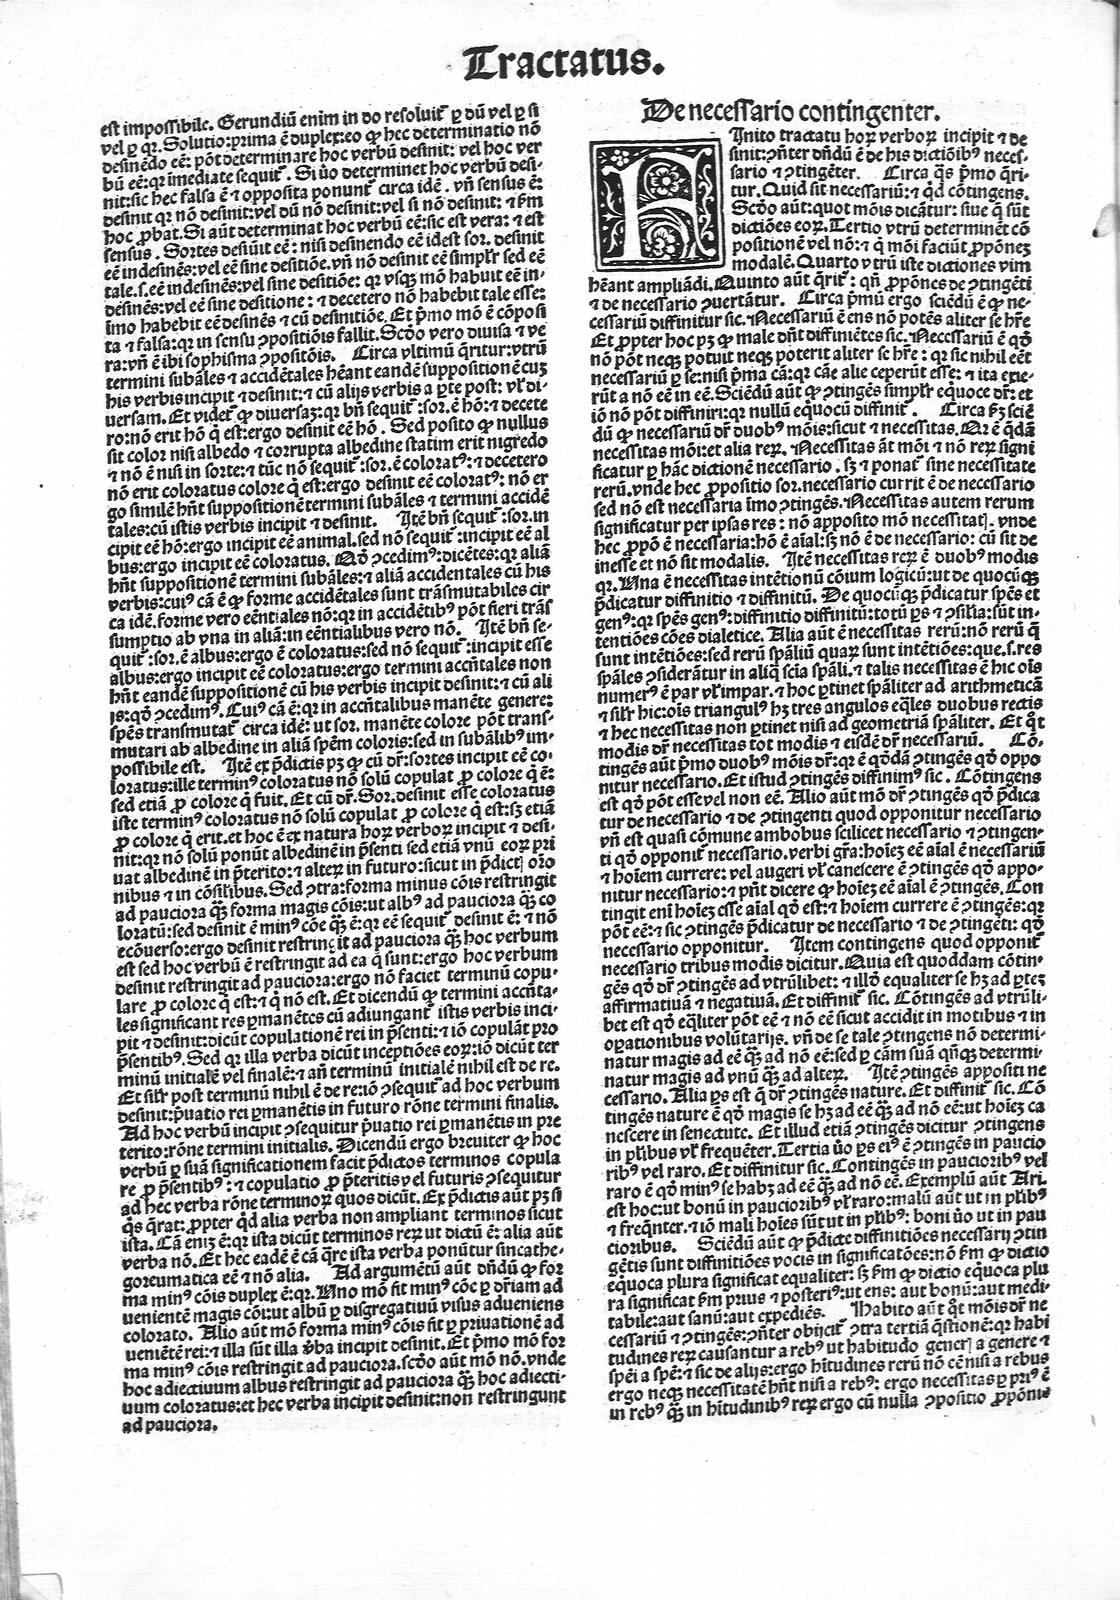 Tractatus.
est impossibile. Gerundiũ enim in do resoluit᷑ ꝑ dũ vel ꝑ si
vel ꝑ qꝛ. Solutio:prima ẽ duplex:eo ꝙ hec determinatio nõ
desinẽdo eẽ: põt determinare hoc verbũ desinit: vel hoc ver
bũ eẽ:qꝛ ĩmediate sequit᷑. Si ṽo determinet hoc verbũ desi-
nit:sic hec falsa ẽ ⁊ opposita ponunt᷑ circa idẽ. vñ sensus ẽ:
desinit qꝛ nõ desinit:vel dũ nõ desinit:vel si nõ desinit: ⁊ ẜm
hoc ꝓbat. Si aũt determinat hoc verbũ eẽ:sic est vera: ⁊ est
sensus. Sortes desiuit eẽ: nisi desinendo eẽ idest sor. desinit
eẽ indesinẽs:vel eẽ sine desitiõe. vñ nõ desinit eẽ simplr̃ sed eẽ
tale.s.eẽ indesinẽs:vel sine desitiõe: qꝛ vsqꝫ mõ habuit eẽ in-
desinẽs:vel eẽ sine desitione: ⁊ decetero nõ habebit tale esse:
ĩmo habebit eẽ desinẽs ⁊ cũ desinitiõe. Et p̃mo mõ ẽ cõposi
ta ⁊ falsa:qꝛ in sensu ꝯpositiõis fallit. Scd̃o vero diuisa ⁊ ve
ra:vñ ẽ ibi sophisma ꝯpositõis. Circa vltimũ q̃ritur:vtrũ
termini subãles ⁊ accidẽtales hẽant eandẽ suppositionẽ cuꝫ
his verbis incipit ⁊ desinit: ⁊ cũ alijs verbis a ꝑte post: vł di-
uersam. Et videt᷑ ꝙ diuersaꝫ:qꝛ bñ sequit᷑ :sor.ẽ hõ: ⁊ decete
ro:nõ erit hõ q̃ est:ergo desinit eẽ hõ. Sed posito ꝙ nullus
sit color nisi albedo ⁊ corrupta albedine statim erit nigredo
⁊ nõ ẽ nisi in sorte: ⁊ tũc nõ sequit᷑ :sor.ẽ coloratꝰ: ⁊ decetero
nõ erit coloratus colore q̃ est:ergo desinit eẽ coloratꝰ: nõ er
go similẽ hñt suppositionẽ termini subãles ⁊ termini accidẽ
tales:cũ istis verbis incipit ⁊ desinit. Itẽ bñ sequit᷑ :sor.in
cipit eẽ hõ:ergo incipit eẽ animal.sed nõ sequit᷑ :incipit eẽ al
bus:ergo incipit eẽ coloratus. Qd̃ ꝯcedimꝰ:dicẽtes:qꝛ aliã
hñt suppositionẽ termini subãles: ⁊ aliã accidentales cũ his
verbis:cuiꝰ cã ẽ ꝙ forme accidẽtales sunt trãsmutabiles cir
ca idẽ.forme vero eẽntiales nõ:qꝛ in accidẽtibꝰ põt fieri trãs
sumptio ab vna in aliã:in eẽntialibus vero nõ. Itẽ bñ se-
quit᷑ :sor.ẽ albus:ergo ẽ coloratus:sed nõ sequit᷑ :incipit esse
albus:ergo incipit eẽ coloratus:ergo termini accñtales non
hñt eandẽ suppositionẽ cũ his verbis incipit desinit: ⁊ cũ ali
js:qd̃ ꝯcedimꝰ. Cuiꝰ cã ẽ:qꝛ in accñtalibus manẽte genere:
spẽs transmutat᷑ circa idẽ: ut sor. manẽte colore põt trans-
mutari ab albedine in aliã spẽm coloris:sed in subãlibꝰ im-
possibile est. Itẽ ex p̃dictis pꝫ ꝙ cũ dr̃:sortes incipit eẽ co-
loratus:ille terminꝰ coloratus nõ solũ copulat ꝓ colore q̃ ẽ:
sed etiã ꝓ colore q̃ fuit. Et cũ dr̃. Sor.desinit esse coloratus
iste terminꝰ coloratus nõ solũ copulat ꝓ colore q̃ est:sꝫ etiã
ꝓ colore q̃ erit.et hoc ẽ ex natura hoꝝ verboꝝ incipit ⁊ desi-
nit:qꝛ nõ solũ ponũt albedinẽ in p̃senti sed etiã vnũ eoꝝ pri
uat albedinẽ in p̃terito: ⁊ alter in futuro:sicut in p̃dictꝭ oro
nibus ⁊ in cõsilibus. Sed ꝯtra:forma minus cõis restringit
ad pauciora q̃ꝫ forma magis cõis:ut albꝰ ad pauciora q̃ꝫ co
loratũ:sed desinit ẽ minꝰ cõe q̃ꝫ ẽ:qꝛ eẽ sequit᷑ desinit ẽ: ⁊ nõ
ecõuerso:ergo desinit restringit ad pauciora q̃ꝫ hoc verbum
est sed hoc verbũ ẽ restringit ad ea q̃ sunt:ergo hoc verbum
desinit restringit ad pauciora:ergo nõ faciet terminũ copu-
lare ꝓ colore q̃ est: ⁊ q̃ nõ est. Et dicendũ ꝙ termini accñta-
les significant res ꝑmanẽtes cũ adiungant᷑ istis verbis inci-
pit ⁊ desinit:dicũt copulationẽ rei in p̃senti: ⁊ iõ copulãt pro
p̃sentibꝰ. Sed qꝛ illa verba dicũt inceptiões eoꝝ:iõ dicũt ter
minũ initialẽ vel finalẽ: ⁊ añ terminũ initialẽ nihil est de re.
Et silr̃ post terminũ nihil ẽ de re:iõ ꝯsequit᷑ ad hoc verbum
desinit:p̃uatio rei ꝑmanẽtis in futuro rõne termini finalis.
Ad hoc verbũ incipit ꝯsequitur p̃uatio rei ꝑmanẽtis in pre
terito:rõne termini initialis. Dicendũ ergo breuiter ꝙ hoc
verbũ ꝑ suã significationem facit p̃dictos terminos copula
re ꝓ p̃sentibꝰ: ⁊ copulatio ꝓ p̃teritis vel futuris ꝯsequitur
ad hec verba rõne terminoꝝ quos dicũt. Ex p̃dictis aũt pꝫ si
q̃s q̃rat: ꝓpter qd̃ alia verba non ampliant terminos sicut
ista. Cã eniꝫ ẽ:qꝛ ista dicũt terminos reꝝ ut dictũ ẽ: alia aũt
verba nõ. Et hec eadẽ ẽ cã q̃re ista verba ponũtur sincathe-
goreumatica eẽ ⁊ nõ alia. Ad argumẽtũ aũt dñdũ ꝙ for
ma minꝰ cõis duplex ẽ:qꝛ. Uno mõ fit minꝰ cõc ꝑ dr̃iam ad
uenientẽ magis cõi:ut albũ ꝑ disgregatiuũ visus adueniens
colorato. Alio aũt mõ forma minꝰ cõis fit ꝑ priuationẽ ad
ueniẽtẽ rei: ⁊ illa sũt illa v̓ba incipit desinit. Et p̃mo mõ for
ma minꝰ cõis restringit ad pauciora.scd̃o aũt mõ nõ.vnde
hoc adiectiuum albus restringit ad pauciora q̃ꝫ hoc adiecti-
uum coloratus:et hec verba incipit desinit:non restringunt
ad pauciora.
De necessario contingenter.
Finito tractatu hoꝝ verboꝝ incipit ⁊ de
sinit:ꝯñter dñdũ ẽ de his dictiõibꝰ neces-
sario ⁊ ꝯtingẽter. Circa q̃s p̃mo q̃ri-
tur. Quid sit necessariũ: ⁊ qd̃ cõtingens.
Scd̃o aũt:quot mõis dicãtur: siue q̃ sũt
dictiões eoꝝ. Tertio vtrũ determinẽt cõ
positionẽ vel nõ: ⁊ q̃ mõi faciũt ꝓpõneꝫ
modalẽ. Quarto vtrũ iste dictiones vim
hẽant ampliãdi. Quinto aũt q̃rit᷑: qñ ꝓpõnes de ꝯtingẽti
⁊ de necessario ꝯuertãtur. Circa p̃mũ ergo sciẽdũ ẽ ꝙ ne-
cessariũ diffinitur sic. Necessariũ ẽ ens nõ potẽs aliter se hr̃e
Et ꝓpter hoc pꝫ ꝙ male dñt diffiniẽtes sic. Necessariũ ẽ qd̃
nõ põt neqꝫ potuit neqꝫ poterit aliter se hr̃e: qꝛ sic nihil eẽt
necessariũ ꝑ se:nisi p̃ma cã:qꝛ cãe alie ceperũt esse: ⁊ ita exie-
rũt a nõ eẽ in eẽ. Sciẽdũ aũt ꝙ ꝯtingẽs simplr̃ equoce dr̃: et
iõ nõ põt diffiniri:qꝛ nullũ equocũ diffinit᷑. Circa ẜꝫ sciẽ
dũ ꝙ necessariũ dr̃ duobꝰ mõis:sicut ⁊ necessitas. Qꝛ ẽ q̃dã
necessitas mõi:et alia reꝝ. Necessitas ãt mõi ⁊ nõ reꝝ signi
ficatur ꝑ hãc dictionẽ necessario. sꝫ ⁊ ponat᷑ sine necessitate
rerũ.vnde hec ꝓpositio sor.necessario currit ẽ de necessario
sed nõ est necessaria ĩmo ꝯtingẽs. Necessitas autem rerum
significatur per ipsas res: nõ apposito mõ necessitatꝭ. vnde
hec ꝓpõ ẽ necessaria:hõ ẽ aĩal:sꝫ nõ ẽ de necessario: cũ sit de
inesse et nõ sit modalis. Itẽ necessitas reꝝ ẽ duobꝰ modis
qꝛ. Una ẽ necessitas intẽtionũ cõium logicũ:ut de quocũqꝫ
p̃dicatur diffinitio ⁊ diffinitũ. De quocũqꝫ p̃dicatur spẽs et
genꝰ:qꝛ spẽs genꝰ:diffinitio diffinitũ:totũ ꝑs ⁊ ꝯsilia:sũt in-
tentiões cões dialetice. Alia aũt ẽ necessitas rerũ:nõ rerũ q̃
sunt intẽtiões:sed rerũ spãliũ quaꝝ sunt intẽtiões:que.s.res
spãles ꝯsiderãtur in aliq̃ scĩa spãli. ⁊ talis necessitas ẽ hic ois
numerꝰ ẽ par vł impar. ⁊ hoc ꝑtinet spãliter ad arithmeticã
⁊ silr̃ hic:oĩs triangulꝰ hꝫ tres angulos eq̃les duobus rectis
⁊ hec necessitas non ꝑtinet nisi ad geometriã spãliter. Et q̃t
modis dr̃ necessitas tot modis ⁊ eisdẽ dr̃ necessariũ. Cõ-
tingẽs aũt p̃mo duobꝰ mõis dr̃:qꝛ ẽ qd̃dã ꝯtingẽs qd̃ oppo
nitur necessario. Et istud ꝯtingẽs diffinimꝰ sic. Cõtingens
est qd̃ põt esse vel non eẽ. Alio aũt mõ dr̃ ꝯtingẽs qd̃ p̃dica
tur de necessario ⁊ de ꝯtingenti quod opponitur necessario
vñ est quasi cõmune ambobus scilicet necessario ⁊ ꝯtingen-
ti qd̃ opponit᷑ necessario.verbi gr̃a:hoĩeꝫ eẽ aĩal ẽ necessariũ
⁊ hoĩem currere: vel augeri vł canescere ẽ ꝯtingẽs qd̃ appo-
nitur necessario: ⁊ pñt dicere ꝙ hoĩeꝫ eẽ aĩal ẽ ꝯtingẽs. Con
tingit enĩ hoĩeꝫ esse aĩal qd̃ est: ⁊ hoĩem currere ẽ ꝯtingẽs:qꝛ
põt eẽ: ⁊ sic ꝯtingẽs p̃dicatur de necessario ⁊ de ꝯtingẽti: qd̃
necessario opponitur. Item contingens quod opponit᷑
necessario tribus modis dicitur. Quia est quoddam cõtin-
gẽs qd̃ dr̃ ꝯtingẽs ad vtrũlibet: ⁊ illd̃ equaliter se hꝫ ad ꝑteꝫ
affirmatiuã ⁊ negatiuã. Et diffinit᷑ sic. Cõtingẽs ad vtrũli-
bet est qd̃ eq̃liter põt eẽ ⁊ nõ eẽ sicut accidit in motibus ⁊ in
oꝑationibus volũtarijs. vñ de se tale ꝯtingens nõ determi-
natur magis ad eẽ q̃ꝫ ad nõ eẽ:sed ꝑ cãm suã qñqꝫ determi
natur magis ad vnũ q̃ꝫ ad alteꝝ. Itẽ ꝯtingẽs appositi ne
cessario. Alia ꝑs est q̃ dr̃ ꝯtingẽs nature. Et diffinit᷑ sic. Cõ
tingẽs nature ẽ qd̃ magis se hꝫ ad eẽ q̃ꝫ ad nõ eẽ:ut hoĩeꝫ ca
nescere in senectute. Et illud etiã ꝯtingẽs dicitur ꝯtingens
in plibus vł frequẽter. Tertia ṽo ꝑs eiꝰ ẽ ꝯtingẽs in paucio
ribꝰ vel raro. Et diffinitur sic. Contingẽs in paucioribꝰ vel
raro ẽ qd̃ minꝰ se habꝫ ad eẽ q̃ꝫ ad nõ eẽ. Exemplũ aũt Ari.
est hoc:ut bonũ in paucioribꝰ vł raro:malũ aũt ut in plr̃ibꝰ
⁊ freq̃nter. ⁊ iõ mali hoĩes sũt ut in plr̃ibꝰ: boni ṽo ut in pau
cioribus. Sciẽdũ aũt ꝙ p̃dicte diffinitiões necessarij ꝯtin
gẽtis sunt diffinitiões vocis in significatões:nõ ẜm ꝙ dictio
eq̃uoca plura significat equaliter: sꝫ ẜm ꝙ dictio eq̃uoca plu
ra significat ẜm prius ⁊ posteriꝰ:ut ens: aut bonũ:aut medi-
tabile:aut sanũ:aut expediẽs. Habito aũt q̃t mõis dr̃ ne
cessariũ ⁊ ꝯtingẽs:ꝯñter obijcit᷑ ꝯtra tertiã q̃stionẽ:qꝛ habi
tudines reꝝ causantur a rebꝰ ut habitudo generꝭ a genere ⁊
spẽi a spẽ: ⁊ sic de alijs:ergo hitudines rerũ nõ cẽ nisi a rebus
ergo neqꝫ necessitatẽ hñt nisi a rebꝰ: ergo necessitas ꝑ priꝰ ẽ
in rebꝰ q̃ꝫ in hitudinibꝰ reꝝ ergo cũ nulla ꝯpositio ꝓpõnis